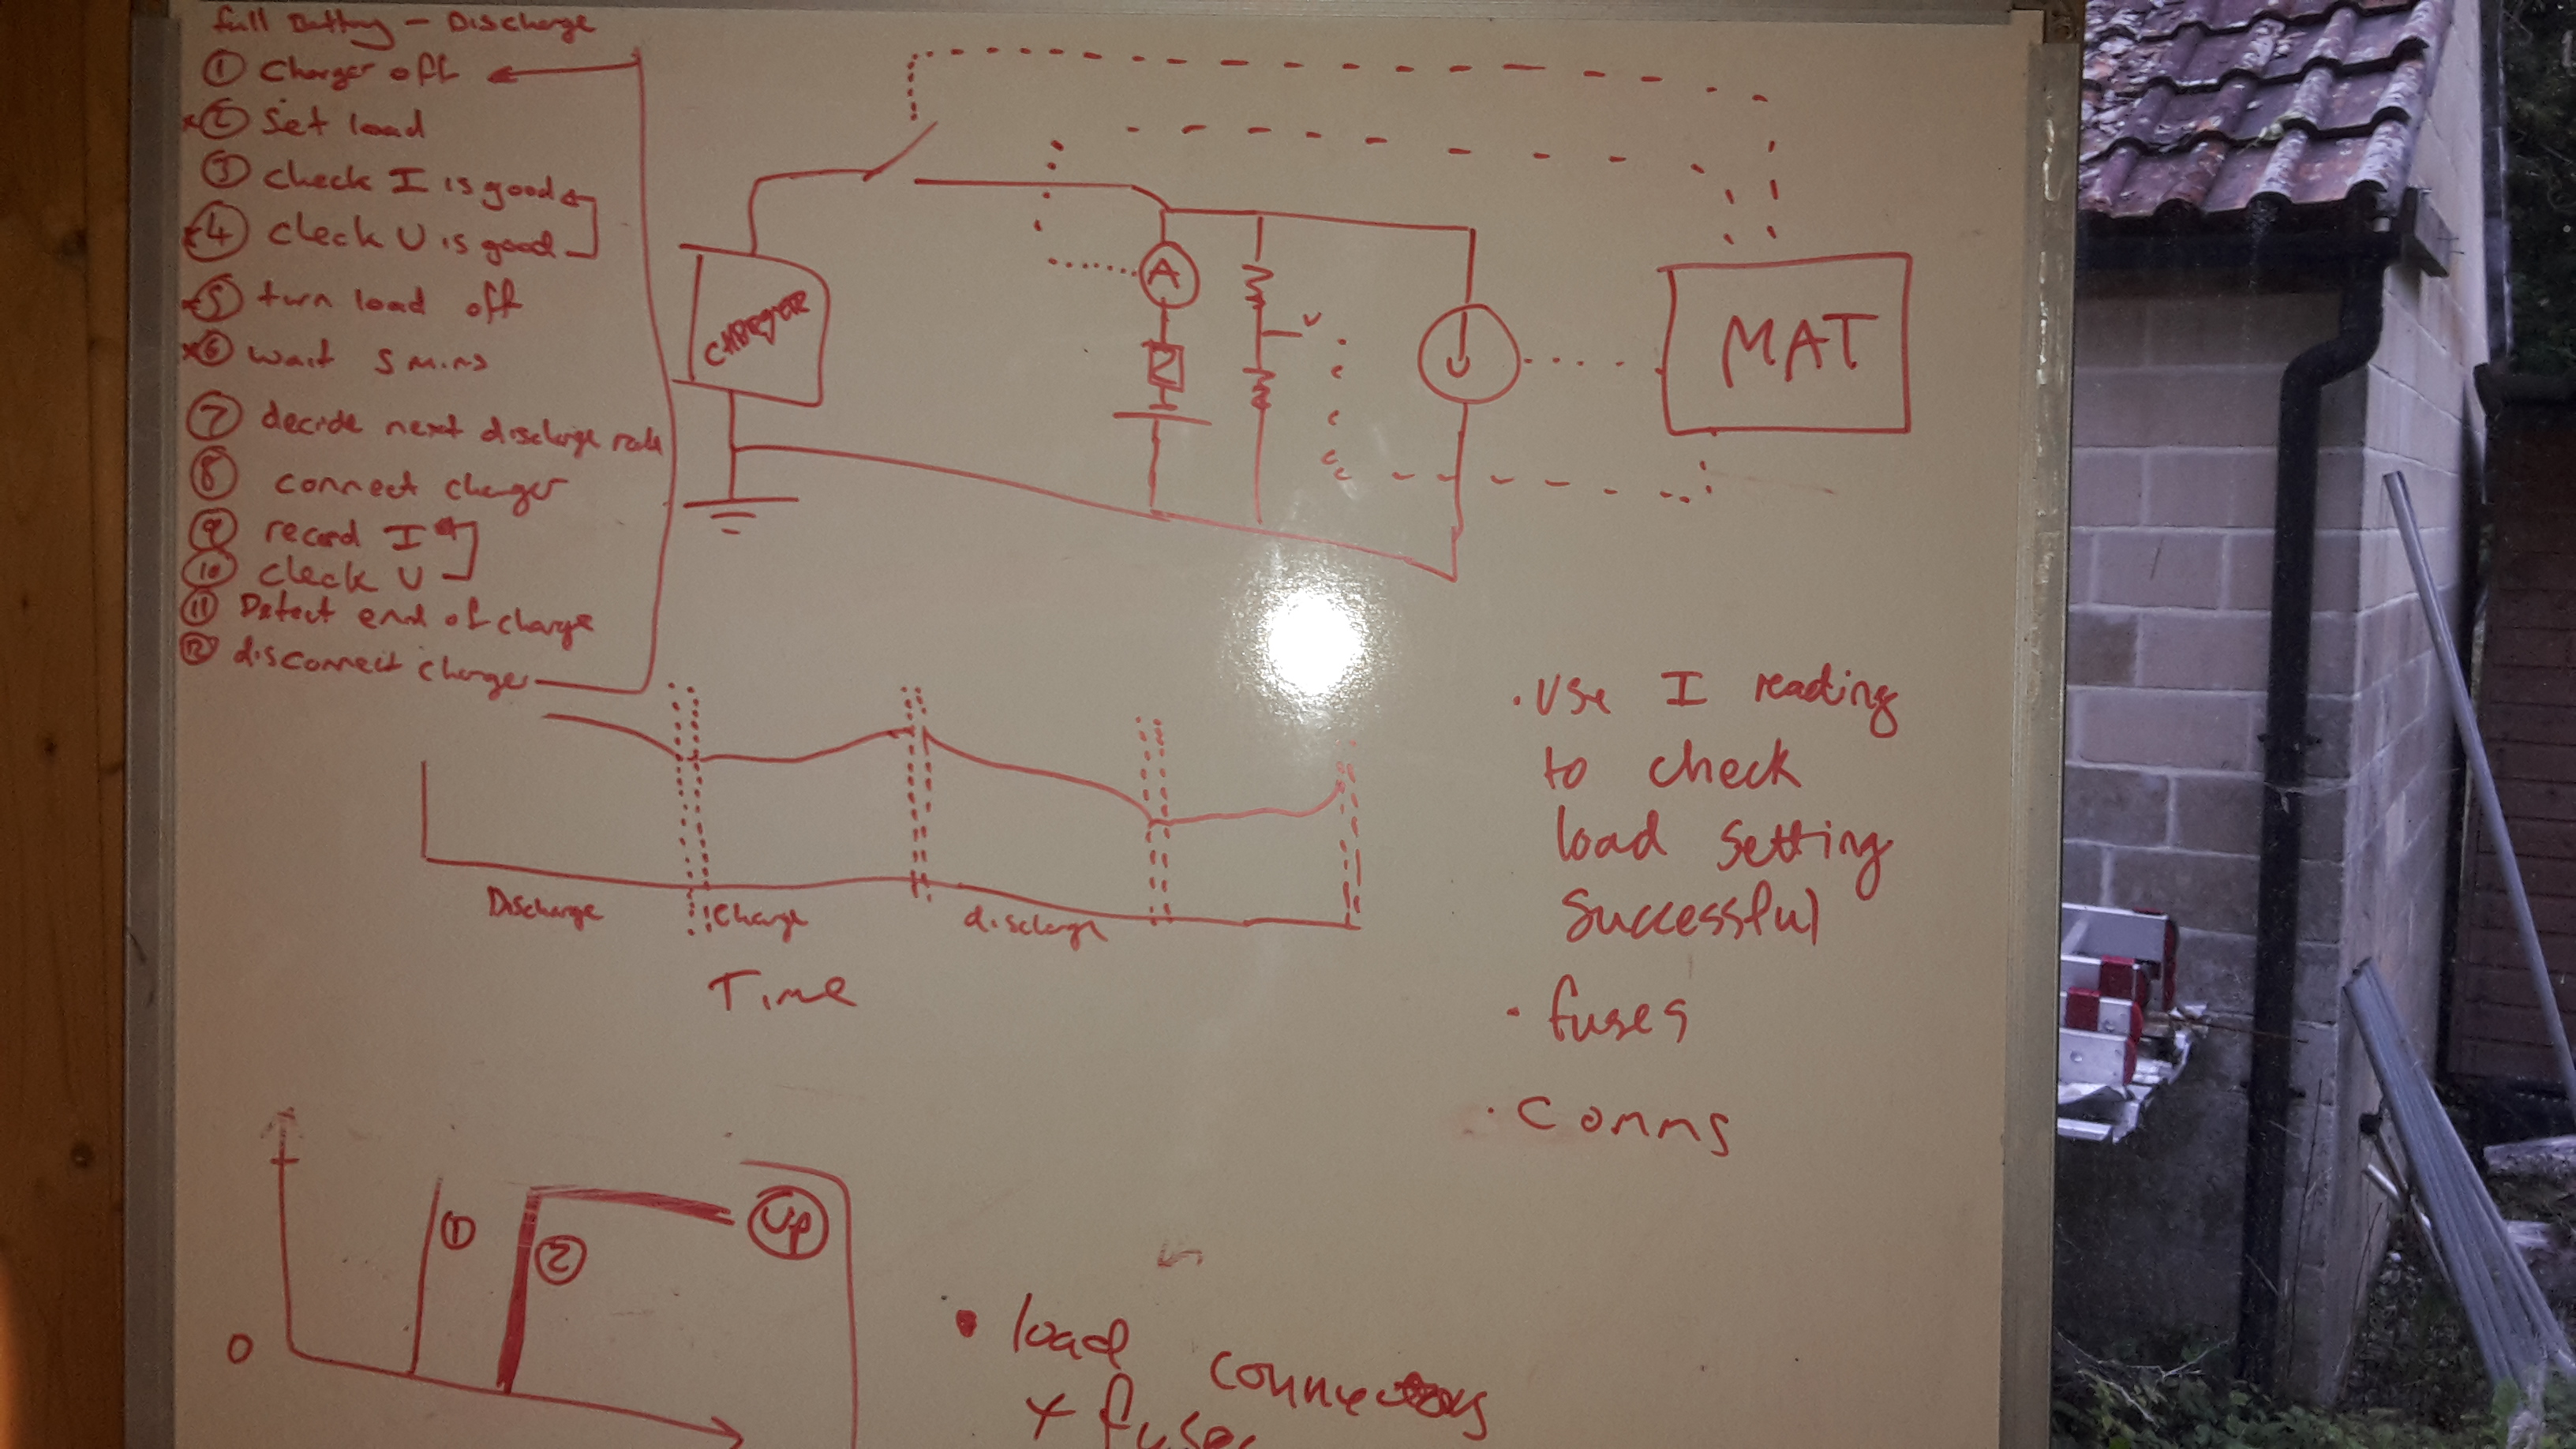 full Battery - Discharge
① Charger off
*② Set load
③ check I is good
*④ check U is good
*⑤ turn load off
*⑥ wait 5 mins
⑦ decide next discharge rate
⑧ connect charger
⑨ record I
⑩ check U
⑪ Detect end of charge
⑫ disconnect charger
CHARGER
A
V
MAT
Discharge
Charge
discharge
Time
• Use I reading
to check
load setting
successful
• fuses
• Comms
①
②
Up
0
• load connectors
+ fuses